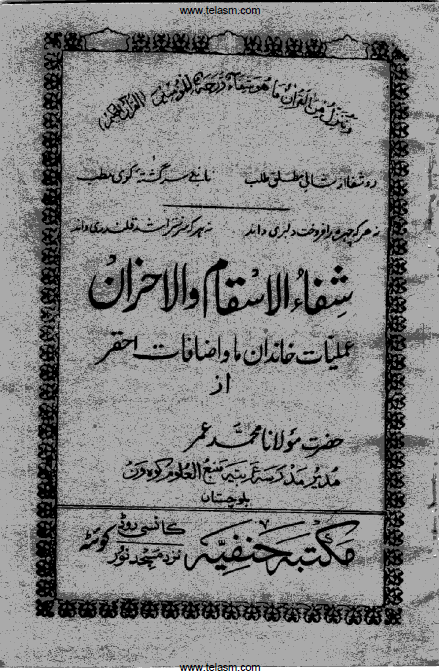 www.telasm.com
وننزل من القرآن ما هو شفاء ورحمة للمؤمنين (القرآن
رو شفا از شافی مطلق طلب تا نہ سر گشتہ کوی مطب
نہ ہر کہ چہرہ برافروخت دلبری داند نہ ہر کہ سر بتراشد قلندری داند
شِفاءُ الاسْقام والاحزان
عملیات خاندان ما و اضافات احقر
از
حضرت مولانا محمد عمر
مدیر مدرسہ عربیہ منبع العلوم کوہ ون
بلوچستان
مکتبہ حنفیہ کانسی روڈ نزد مسجد نور کوئٹہ
www.telasm.com